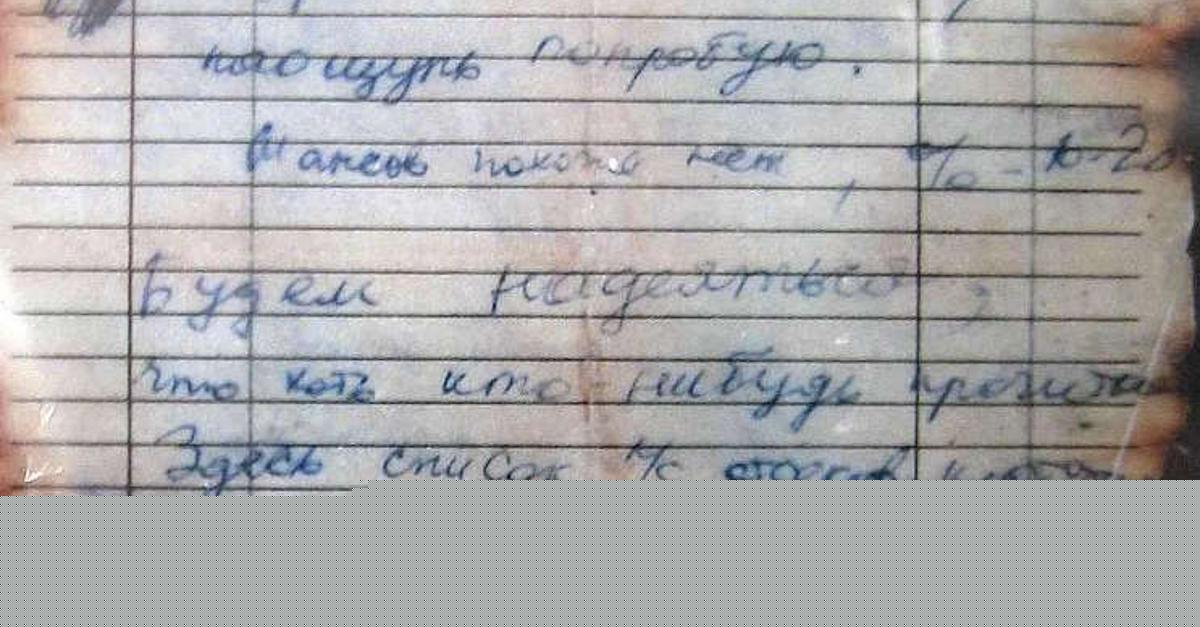 наощупь попробую.
Шансов похоже нет, % - 10-20
Будем надеяться,
что хоть кто-нибудь прочита
Здесь список л/с отсеков